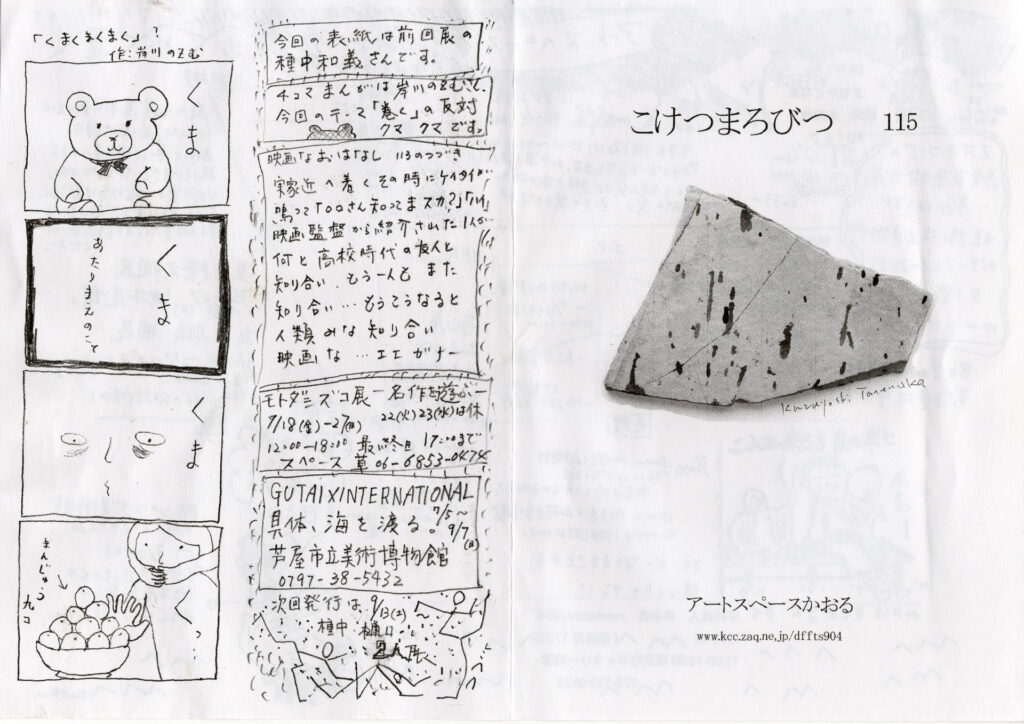 「くまくまくまく」?
作:岸川のぞむ
くま
くま
あたりまえのこと
くま
くっ
きんじゅう
九コ
今回の表紙は前回展の
種中和義さんです。
4コマまんがは岸川のぞむさん、
今回のテーマ「巻く」の反対
クマ クマ です。
映画なおはなし 113のつづき
実家近へ着くその時にケイタイが
鳴って「〇〇さん知ってまスカ?」「ハイ」
映画監督から紹介された1人が
何と高校時代の友人と
知り合い、もう一人も また
知り合い…もうこうなると
人類みな知り合い
映画な…エエガナー
モトダニスズコ展ー名作を遊ぶー
7/18(金)-27(日) 22(火)23(水)は休
12:00-18:00 最終日 17:00まで
スペース草 06-6853-0474
GUTAI X INTERNATIONAL
具体、海を渡る。7/5~
9/7(日)
芦屋市立美術博物館
0797-38-5432
次回発行は、9/13(土)
種中 樋口
2人展へ
こけつまろびつ 115
Kazuyoshi Tananaka
アートスペースかおる
www.kcc.zaq.ne.jp/dffts904